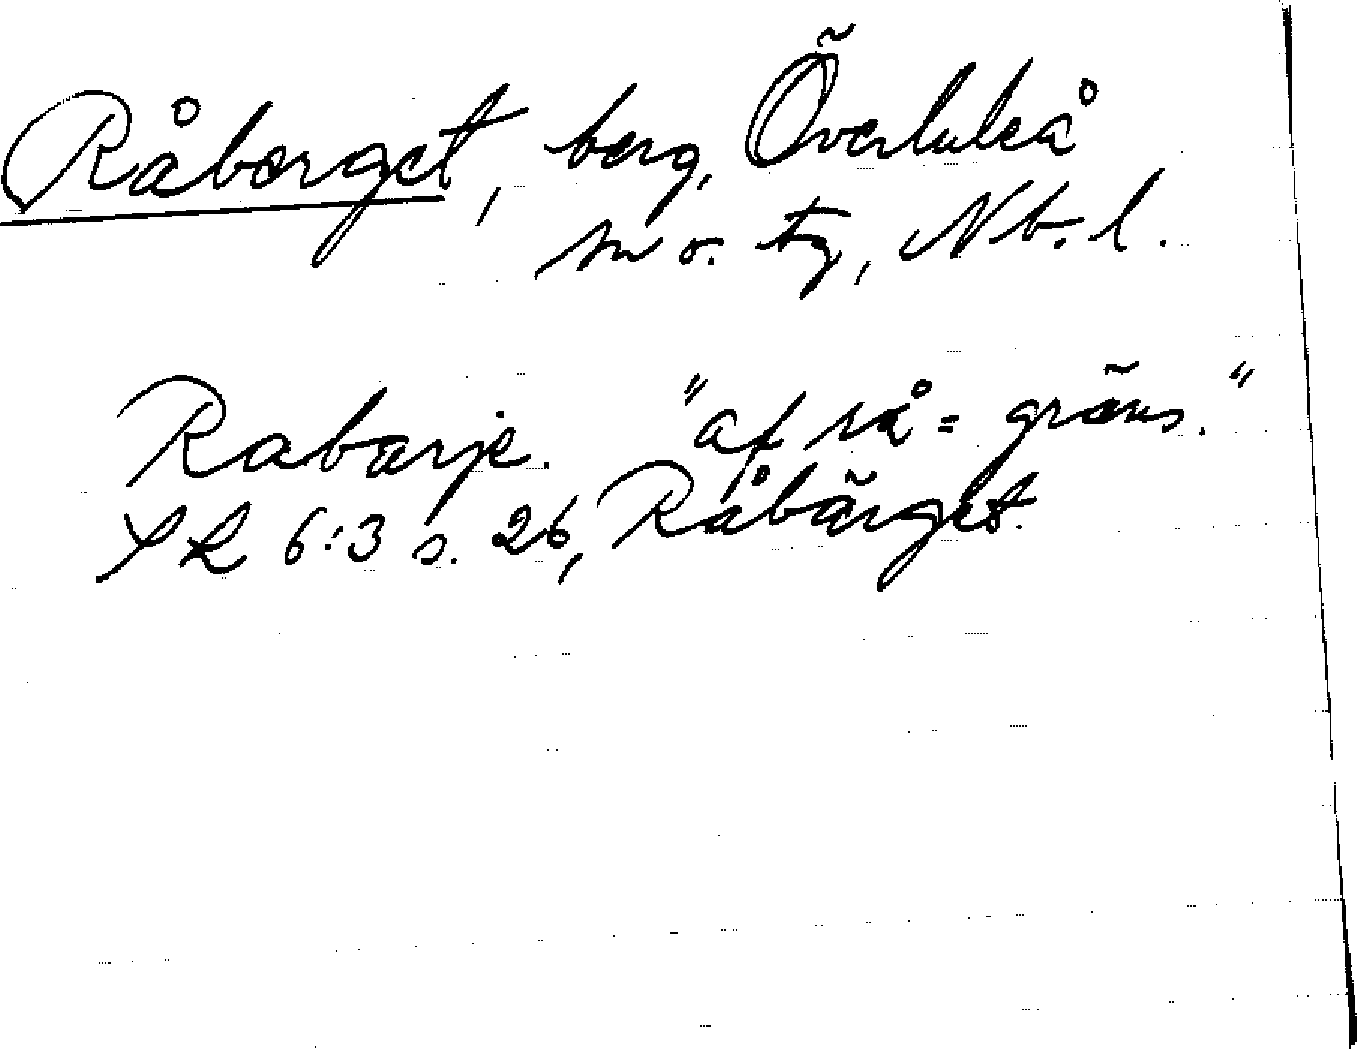 Råberget, berg, Överluleå
sn o. tg, Nb. l.
Rabarje. "af rå = gräns."
SL 6:3 s. 26, Råbärget.